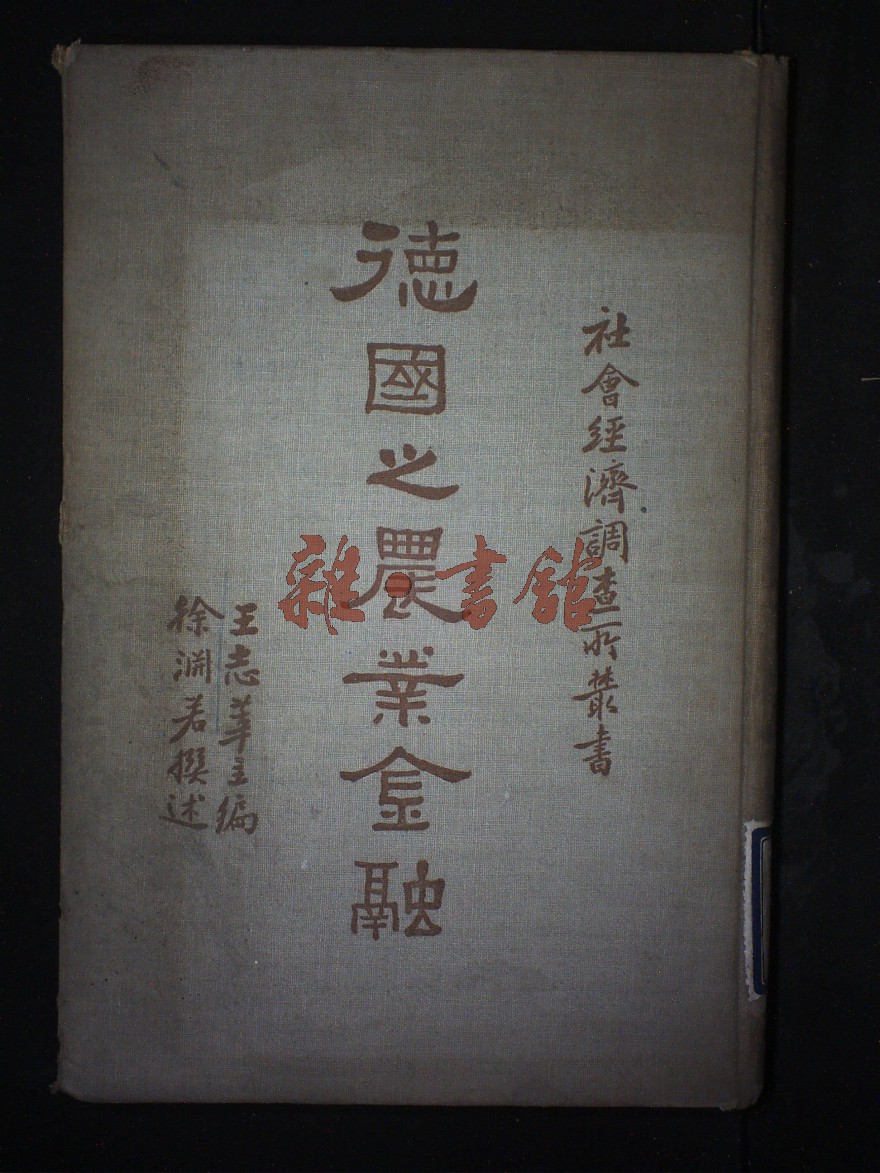 社會經濟調查所叢書
德國之農業金融
王志莘主編
徐淵若撰述
雜·書館